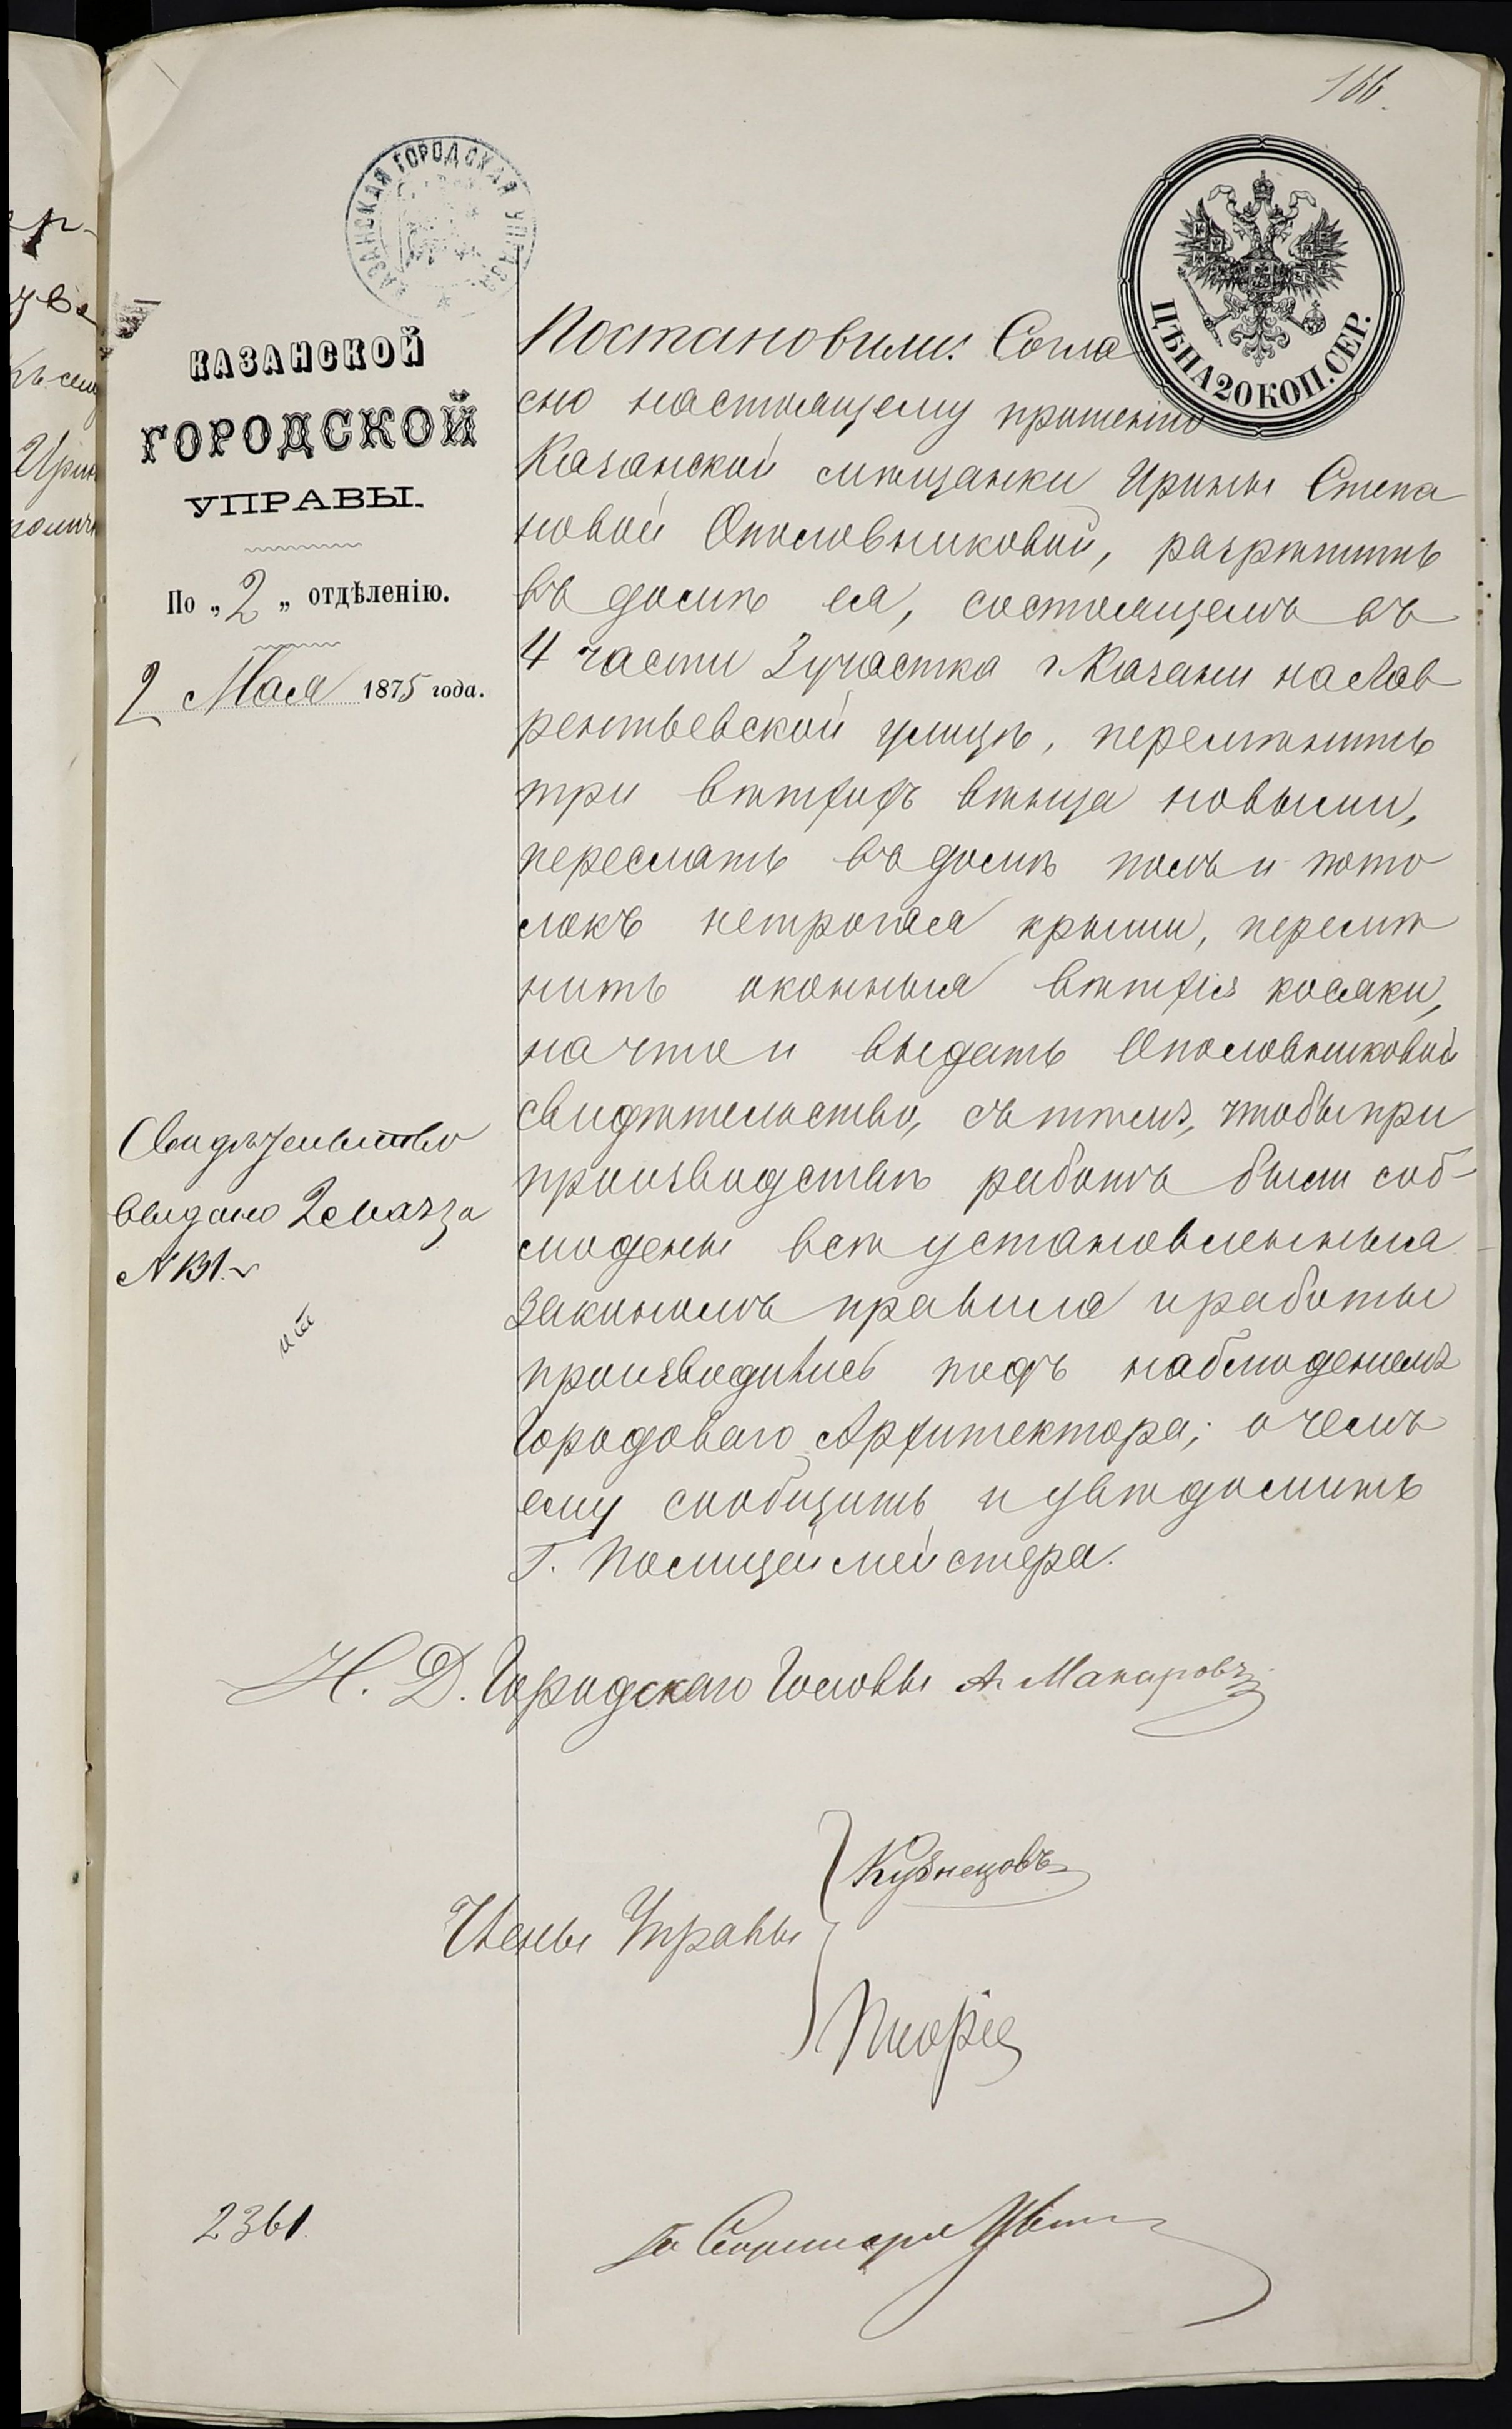 166.
КАЗАНСКАЯ ГОРОДСКАЯ УПРАВА
ЦѢНА 20 КОП. СЕР.
КАЗАНСКОЙ
ГОРОДСКОЙ
УПРАВЫ.
По „2„ отдѣленію.
2 Мая 1875 года.
Постановили: Согла
сно настоящему прошенію
Казанской мѣщанки Ирины Степа
новой Ополовниковой, разрѣшить
въ домѣ ея, состоящемъ въ
4 части 3 участка г. Казани на Лав
рентьевской улицѣ, перемѣнить
три ветхихъ вѣнца новыми,
переслать въ домѣ полъ и пото
локъ нетрогая крыши, перемѣ
нить оконныя ветхія косяки,
на что и выдать Ополовниковой
свидѣтельство, съ тѣмъ, чтобы при
производствѣ работъ были соб-
людены всѣ установленныя
закономъ правила и работы
производились подъ наблюденіемъ
Городоваго Архитектора; о чемъ
ему сообщить и увѣдомить
Г. Полицеймейстера.
Свидѣтельство
выдано 2 мая за
N 131.
Н. Д. Городскаго Головы А. Макаровъ
Кузнецовъ
Члены Управы
За Секретаря
2361.